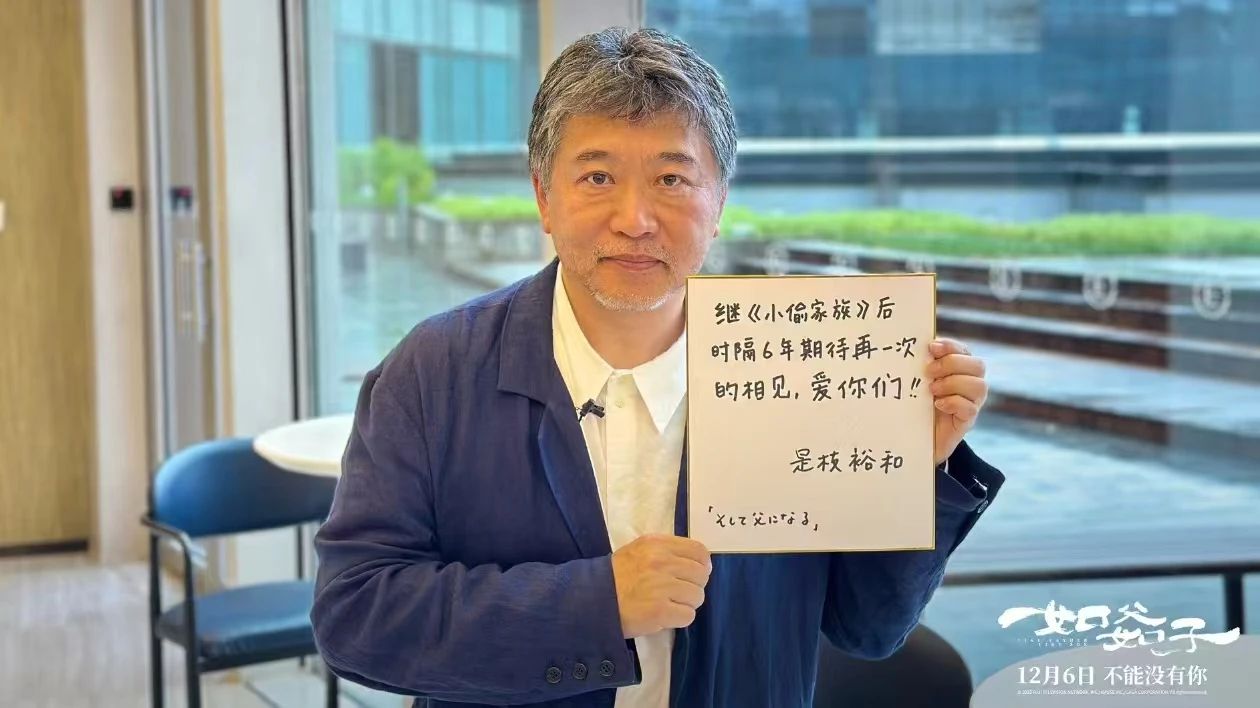 继《小偷家族》后
时隔6年期待再一次
的相见，爱你们!!
是枝裕和
「そして父になる」
如父如子
LIKE FATHER
LIKE SON
12月6日 不能没有你